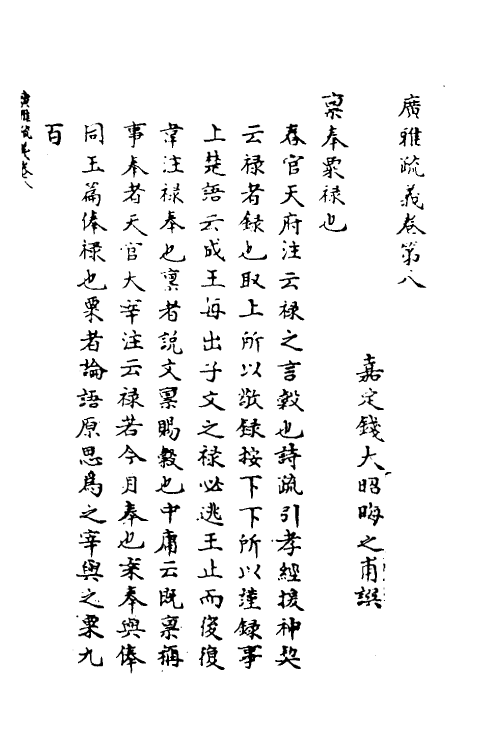 廣雅疏義卷第八
嘉定錢大昭晦之甫譔
稟奉粟祿也
春官天府注云祿之言穀也詩疏引孝經援神契
云祿者錄也取上所以敬錄接下下所以謹錄事
上楚語云成王每出子文之祿必逃王止而後復
韋注祿奉也稟者說文稟賜穀也中庸云既稟稱
事奉者天官大宰注云祿若今月奉也案奉與俸
同玉篇俸祿也粟者論語原思爲之宰與之粟九
百
廣雅疏義卷八